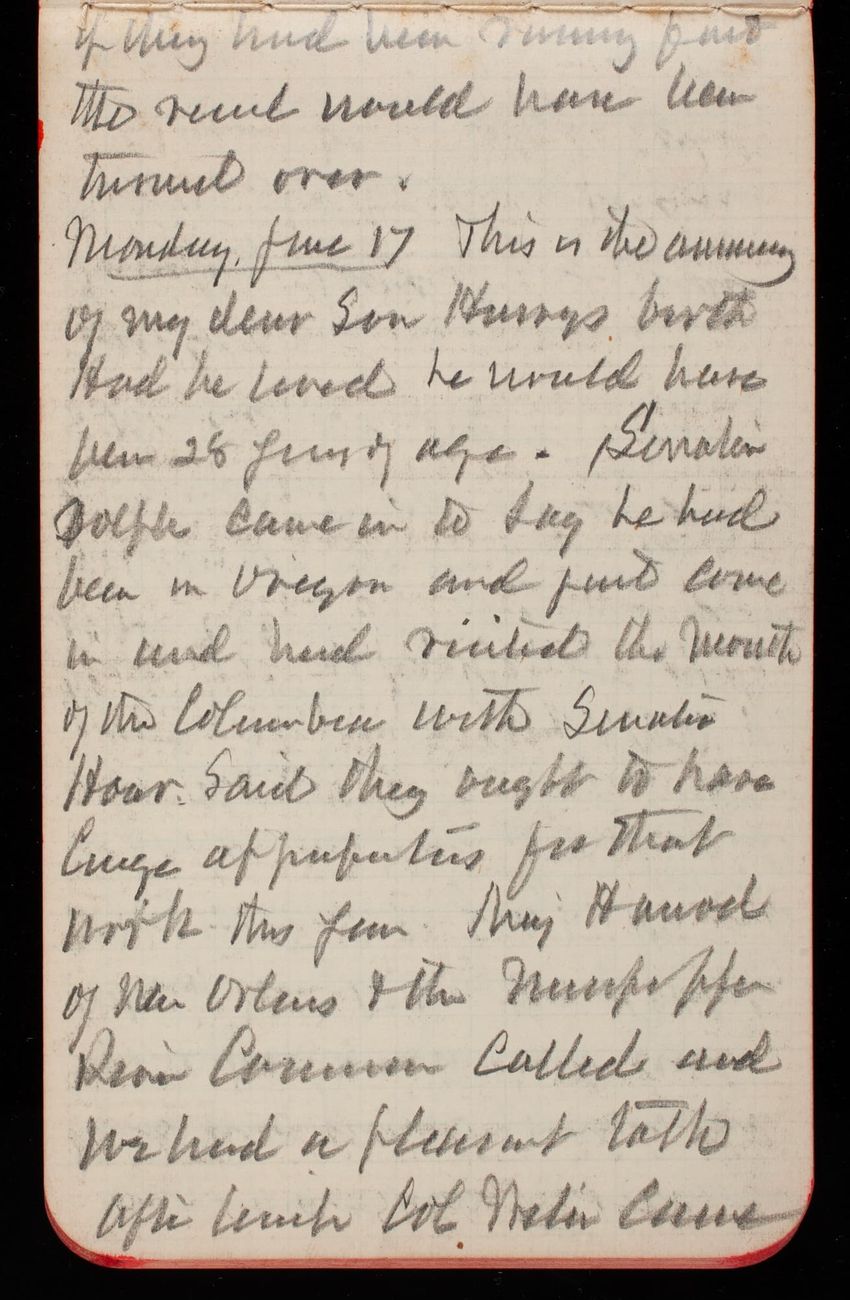 if they had been running fast
the result would have been
turned over.
Monday, June 17 This is the anniversy
of my dear Son Harrys birth
Had he lived he would have
been 28 years of age. Senator
Dolph came in to say he had
been in Oregon and just come
in and had visited the Mouth
of the Columbia with Senator
Hoar. Said they ought to have
large appropriations for that
work this year. Maj Harrod
of New Orleans & the Mississippi
River Common Called and
We had a pleasant talk
After lunch Col Came